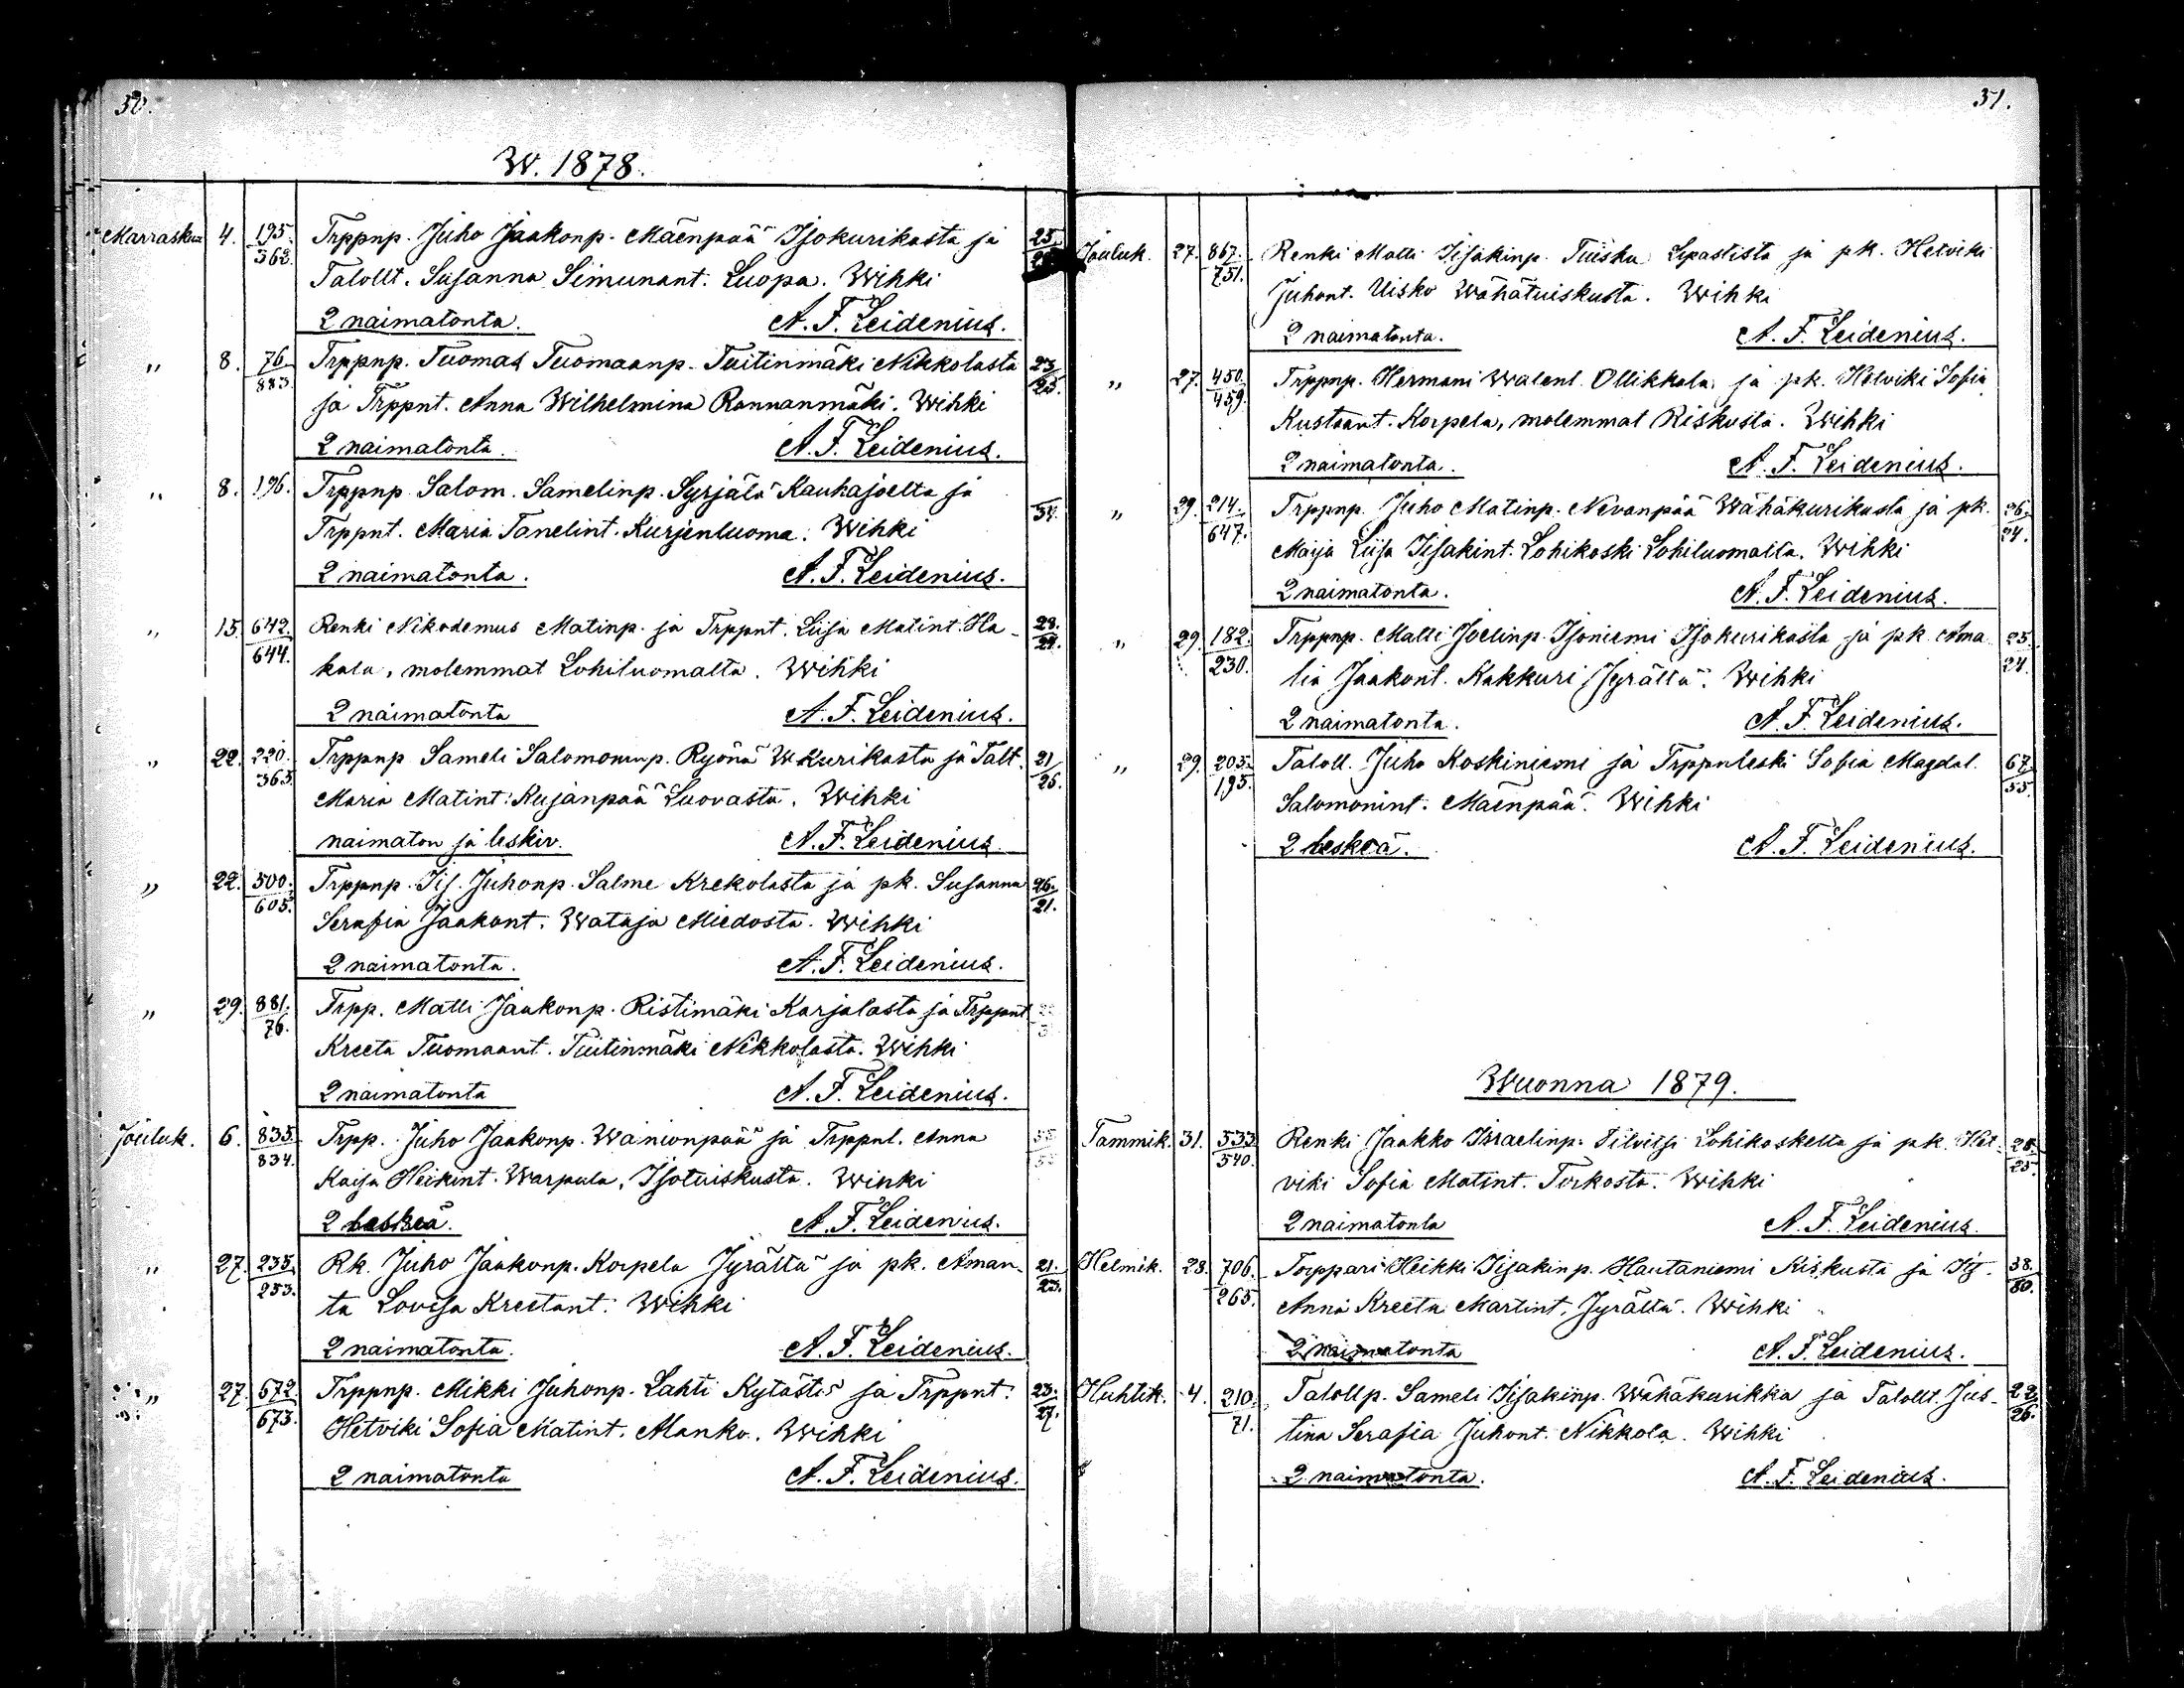 50.
W. 1878.
Marrasku 4. 195. 362. Trppnp. Juho Jaakonp. Mäenpää Isokurikasta ja 25.
Talollt. Susanna Simunant. Luopa. Wihki
2 naimatonta. A. F. Leidenius.
" 8. 76. 883. Trppnp. Tuomas Tuomaanp. Tuitinmäki Nikkolasta 23. 25.
ja Trppnt. Anna Wilhelmina Rannanmäki. Wihki
2 naimatonta. A. F. Leidenius.
" 8. 196. Trppnp. Salom. Samelinp. Syrjälä Kauhajoelta ja
Trppnt. Maria Tanelint. Kurjenluoma. Wihki
2 naimatonta. A. F. Leidenius.
" 15. 642. 644. Renki Nikodemus Matinp. ja Trppnt. Liisa Matint. Ha-
kala, molemmat Lohiluomalta. Wihki
2 naimatonta A. F. Leidenius.
" 22. 220. 363. Trppnp Sameli Salomoninp. Ryönä W Kurikasta ja Talt. 21 26.
Maria Matint. Kujanpää Luovasta. Wihki
naimaton ja leskiv. A. F. Leidenius.
" 22. 500. 605. Trppnp. Iis. Juhonp. Salme Krekolasta ja pk. Susanna 26. 21.
Serafia Jaakont. Wataja Miedosta. Wihki
2 naimatonta. A. F. Leidenius.
" 29. 881. 76. Trpp. Matti Jaakonp. Ristimäki Karjalasta ja Trppnt
Kreeta Tuomaant. Tuitinmäki Nikkolasta. Wihki
2 naimatonta A. F. Leidenius.
Jouluk. 6. 835. 834. Trpp. Juho Jaakonp. Wanionpää ja Trppnl. Anna
Kaisa Heikint. Warpula, Isotuiskusta. Wihki
2 leskeä. A. F. Leidenius.
" 27. 235. 253. Rk. Juho Jaakonp. Korpela Jyrältä ja pk. Aman- 21. 23.
ta Lovisa Kreetant. Wihki
2 naimatonta. A. F. Leidenius.
" 27. 672. 673. Trppnp. Mikki Juhonp. Lahti Kytöstä ja Trppnt. 23. 27.
Hetviki Sofia Matint. Manko. Wihki
2 naimatonta A. F. Leidenius.
51.
Jouluk. 27. 867. 751. Renki Matti Iisakinp. Tuisku Lipastista ja pk. Hetviki
Juhont. Uisko Wähätuiskusta. Wihki
2 naimatonta. A. F. Leidenius.
" 27. 450. 459. Trppnp. Hermani Walent. Ollikkala ja pk. Hetviki Sofia
Kustaant. Korpela, molemmat Riskusta. Wihki
2 naimatonta. A. F. Leidenius.
" 29. 214. 647. Trppnp. Juho Matinp. Nevanpää Wähäkurikasta ja pk. 26. 24.
Maija Liisa Iisakint. Lohikoski Lohiluomalta. Wihki
2 naimatonta. A. F. Leidenius.
" 29. 182. 230. Trppnp. Matti Joelinp. Isoniemi Isokurikasta ja pk. Ama- 25. 24.
lia Jaakont. Kakkuri Jyrältä. Wihki
2 naimatonta. A. F. Leidenius.
" 29. 203. 195. Taloll. Juho Koskiniemi ja Trppnleski Sofia Magdal. 67. 55.
Salomonint. Mäenpää. Wihki
2 leskeä. A. F. Leidenius.
Wuonna 1879.
Tammik. 31. 533. 540. Renki Jaakko Israelinp. Tilvitsi Lohikoskelta ja pk. Het- 28. 25.
viki Sofia Matint. Torkosta. Wihki
2 naimatonta A. F. Leidenius.
Helmik. 28. 706. 265. Torppari Heikki Iisakinp. Hautaniemi Kiskusta ja Its. 38. 80.
Anna Kreeta Martint. Jyrältä. Wihki
2 naimatonta A. F. Leidenius.
Huhtik. 4. 210. 71. Talollp. Sameli Iisakinp. Wähäkurikka ja Talollt. Jus- 22. 26.
tina Serafia Juhont. Nikkola. Wihki
2 naimatonta. A. F. Leidenius.